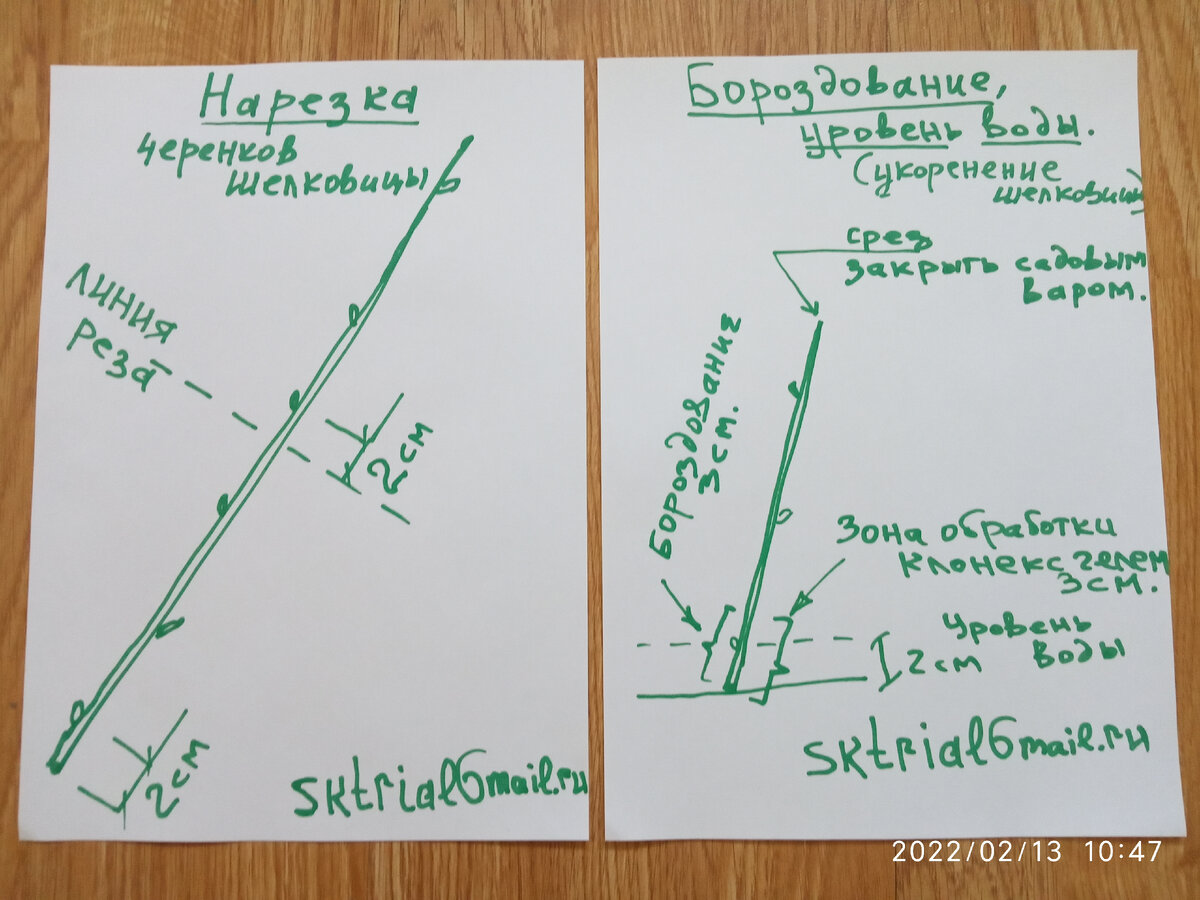 Нарезка
черенков
шелковицы
линия
реза
2 см
2 см
sktrial@mail.ru
Бороздование,
уровень воды.
(укоренение
шелковицы)
срез
закрыть садовым
варом.
Бороздование
3 см.
Зона обработки
Клонекс гелем
3 см.
Уровень
воды
2 см
sktrial@mail.ru
2022/02/13 10:47